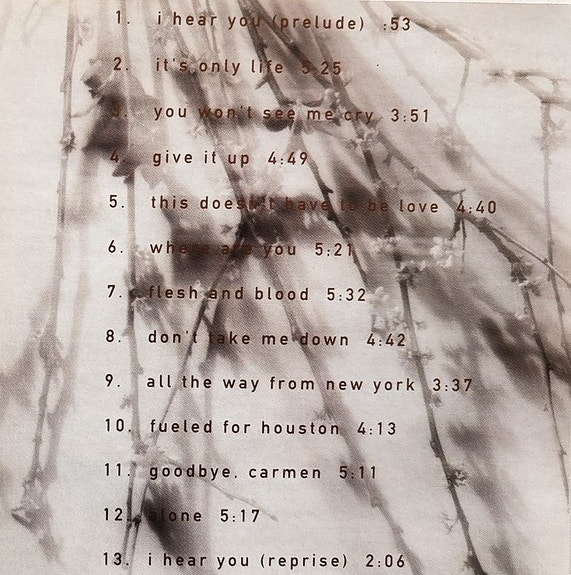 1. i hear you (prelude) :53
2. it's only life 5:25
3. you won't see me cry 3:51
4. give it up 4:49
5. this doesn't have to be love 4:40
6. where are you 5:21
7. flesh and blood 5:32
8. don't take me down 4:42
9. all the way from new york 3:37
10. fueled for houston 4:13
11. goodbye, carmen 5:11
12. alone 5:17
13. i hear you (reprise) 2:06